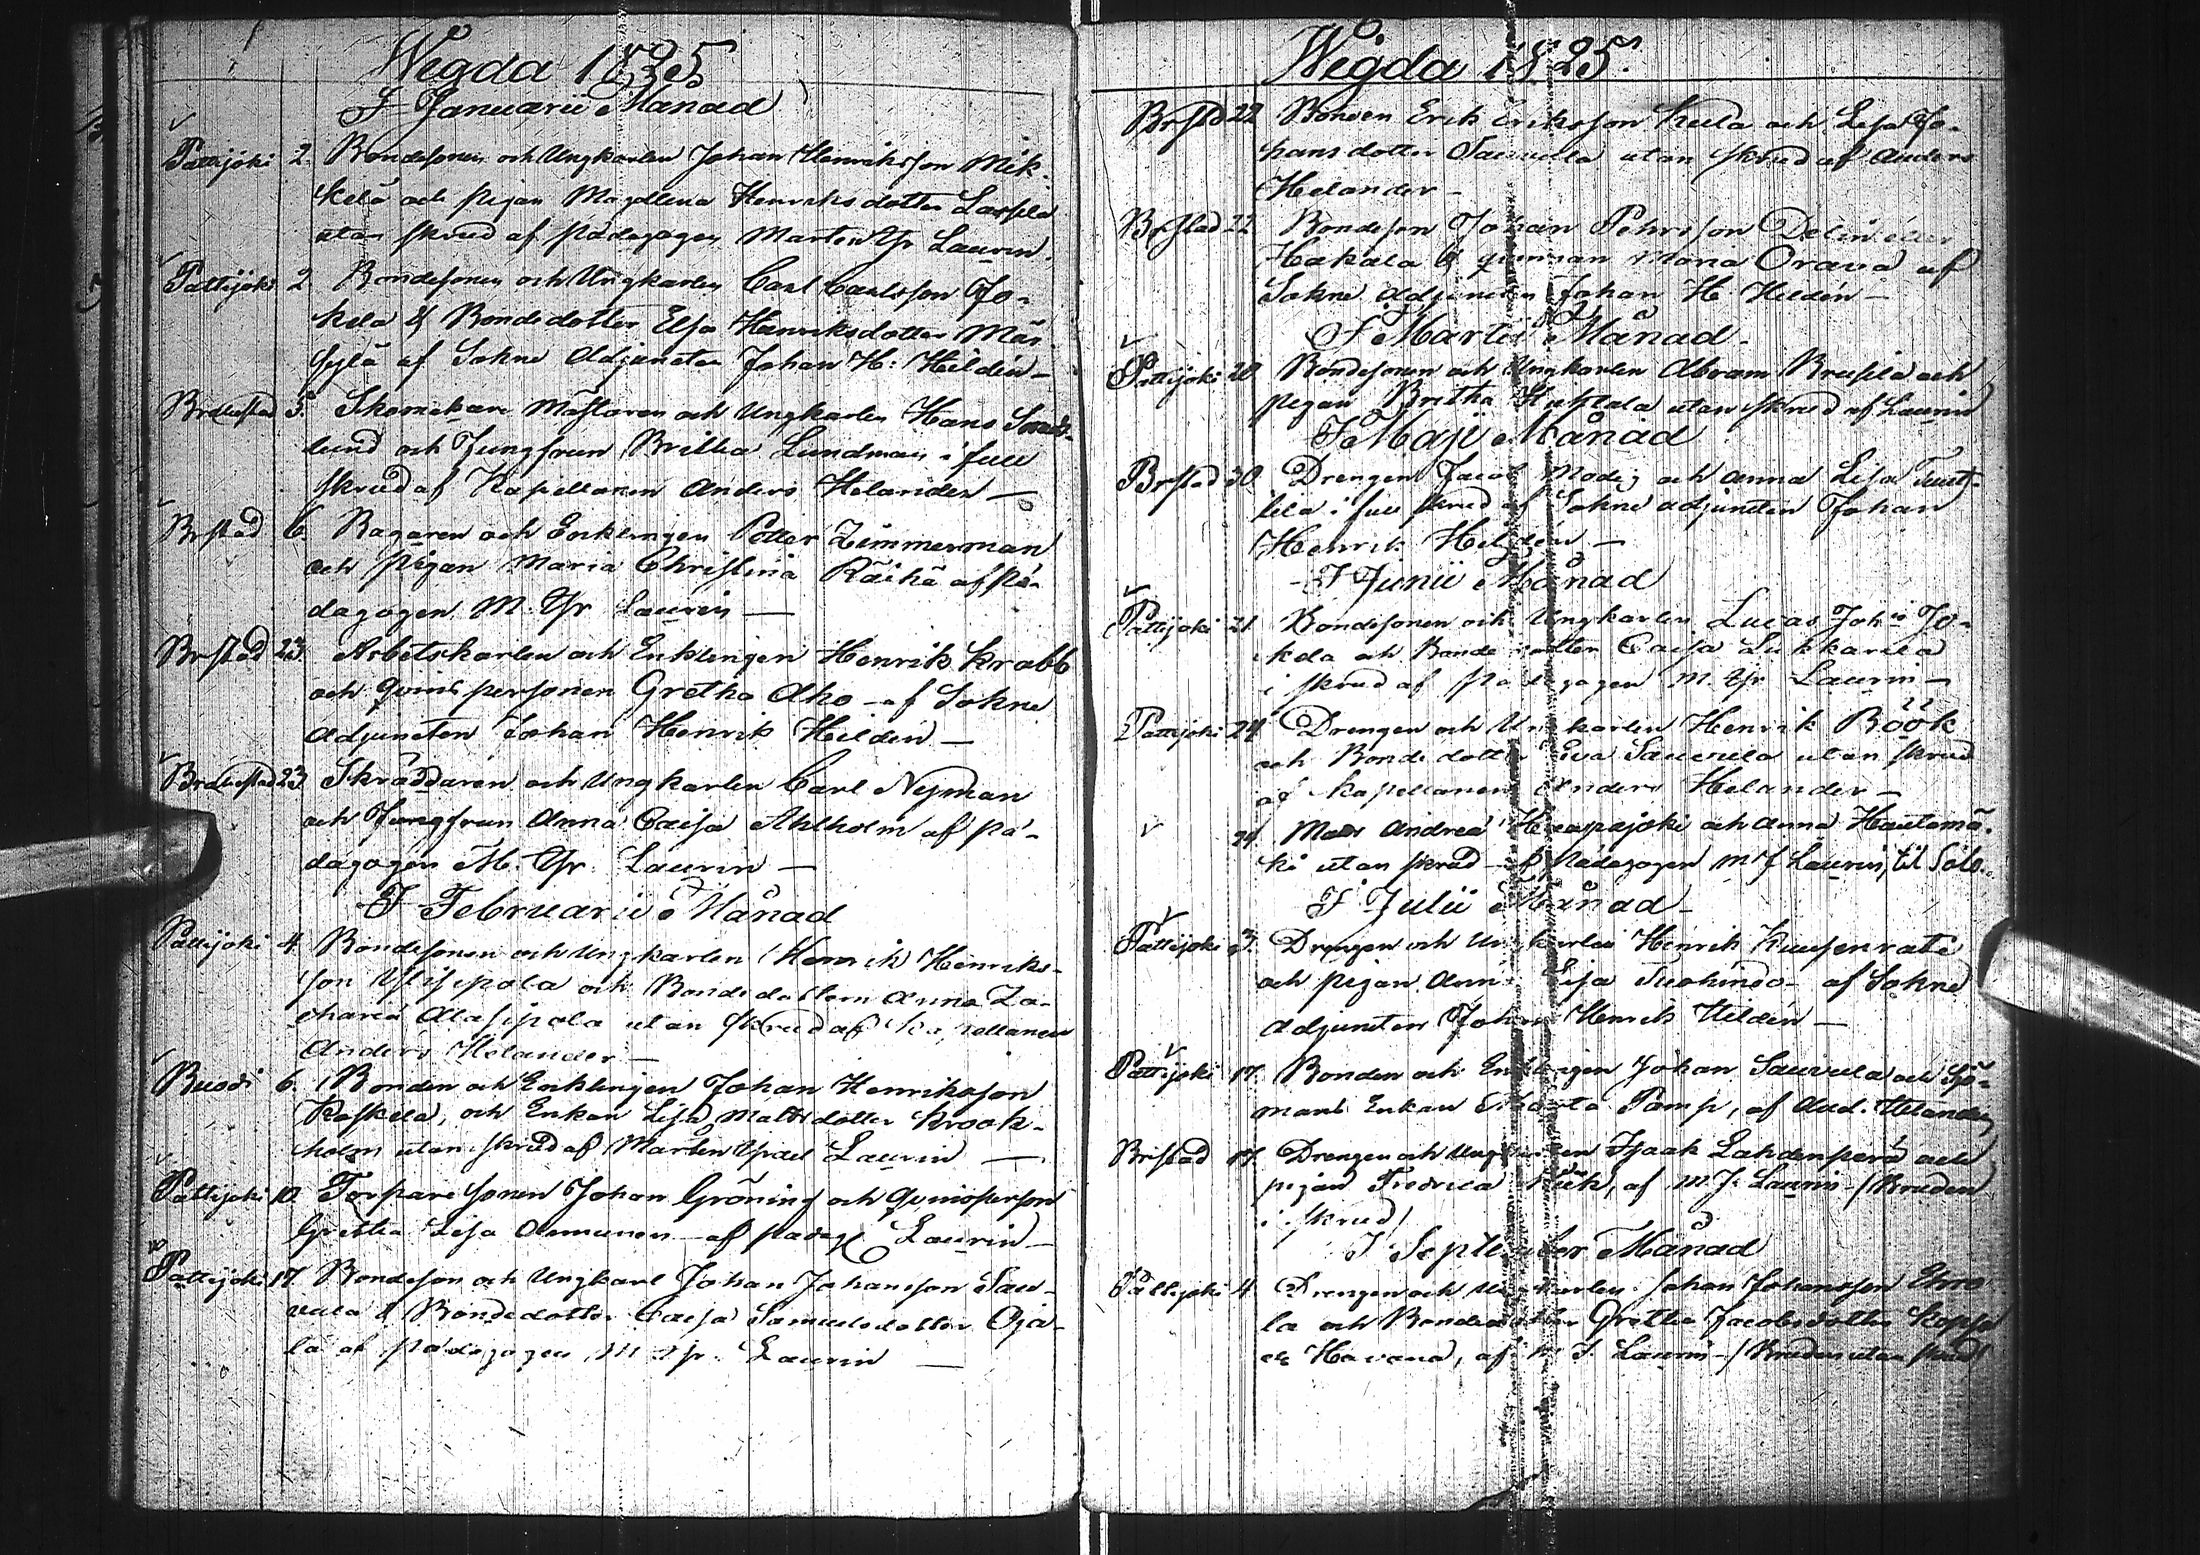 Wigda 1825
I Januarii Månad
Pattijoki 2. Bondesonen och Ungkarlen Johan Henriksson Mik-
kelä och pigan Magdlena Henriksdotter Laspla
utan skrud af pädagogen Marten Jsr Laurin.
Pattijoki 2 Bondesonen och Ungkarlen Carl Carlsson Jo-
kela & Bondedotter Elsa Henriksdotter Mär-
sylä af Sokne Adjuncten Johan H: Heldén —
Brahestad 3. Skomakare Mästaren och Ungkarlen Hans
lund och Jungfrun Britha Lundman i full
skrud af Kapellanen Anders Helander —
Brstad 6. Bagaren och Enklingen Petter Zimmerman
och pigan Maria Christina Räihä af pä-
dagogen M. Jsr Laurin —
Brstad 23. Arbetskarlen och Enklingen Henrik Krabb
och qvins personen Gretha Aho af Sokne
Adjuncten Johan Henrik Heldén —
Brahestad 23 Skräddaren och Ungkarlen Carl Nyman
och Jungfrun Anna Caisa Ahlholm af pä-
dagogen M. Jsr Laurin —
I Februarii Månad
Pattijoki 4. Bondesonen och Ungkarlen Henrik Henriks-
son Ylisipola och Bondedottern Anna Za-
charia Alasipola utan skrud af Kapellanen
Anders Helander —
6. Bonden och Enklingen Johan Henriksson
Koskela, och Enkan Lisa Mattsdotter Krook-
holm utan skrud af Marten Jsrael Laurin —
Pattijoki 10. Torpare sonen Johan Gröning och Qvinsperson
Gretha Lisa Annunen af pädag Laurin —
Pattijoki 17. Bondeson och Ungkarl Johan Johansson Sau-
vula & Bondedotter Caisa Samuelsdotter Oja-
la af pädagogen M. Jsr. Laurin —
Wigda 1825.
Brstad 22 Bonden Erik Eriksson Keela och Lisa Jo-
hansdotter Sauvula utan skrud af Anders
Helander —
Brstad 22 Bondeson Johan Pehrsson Delin eller
Hakala & qvinnan Maria Orava af
Sokne Adjuncten Johan H. Heldén —
I Martii Månad
Pattijoki 20 Bondesonen och Ungkarlen Abram Brusila och
pigan Britha Huhtala utan skrud af Laurin
I Maji Månad
Brstad 30 Drengen Jacob Modig och Anna Lisa Tuut-
tila i full skrud af Sokne adjuncten Johan
Henrik Heldén —
I Junii Månad
Pattijoki 21. Bondesonen och Ungkarlen Lucas Johs Jo-
kela och Bondedotter Caisa Lukkarila
i skrud af pädagogen M. Jsr Laurin —
Pattijoki 24 Drengen och Ungkarlen Henrik Böök
och Bondedotter Eva Sauvula utan skrud
af kapellanen Anders Helander —
24 Matts Andreæ Haapajoki och Anna Hautamä-
ki utan skrud af Pädagogen M J Laurin, til Salo.
I Julii Månad
Pattijoki 3. Drengen och Ungkarlen Henrik Kuusenrati
och pigan Anna Lisa af Sokne
Adjuncten Johan Henrik Heldén —
Pattijoki 17. Bonden och Enklingen Johan Sauvula och Sjö-
mans Enkan Maria Pamp, af And. Helander
Brstad 17. Drengen och Ungkarlen Isaak Lahdenperä och
pigan Fredrica af M. J. Laurin (Bruden
i skrud)
I September Månad
Pattijoki 4 Drengen och Ungkarlen Johan Johansson
la och Bondedotter Gretha Jacobsdotter Kopsa
af M. J. Laurin — (Bruden utan skrud)